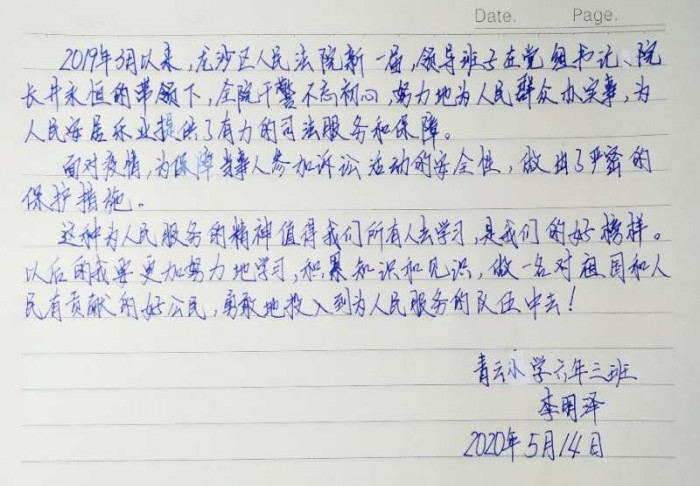 Date. Page.
2019年3月以来,龙沙区人民法院新一届,领导班子在党组书记、院
长井永恒的带领下,全院干警不忘初心,努力地为人民群众办实事,为
人民安居乐业提供了有力的司法服务和保障。
面对疫情,为保障当事人参加诉讼活动的安全性,做出了严密的
保护措施。
这种为人民服务的精神值得我们所有人去学习,是我们的好榜样。
以后的我要更加努力地学习,积累知识和见识,做一名对祖国和人
民有贡献的好公民,勇敢地投入到为人民服务的队伍中去!
青云小学六年三班
李明泽
2020年5月14日